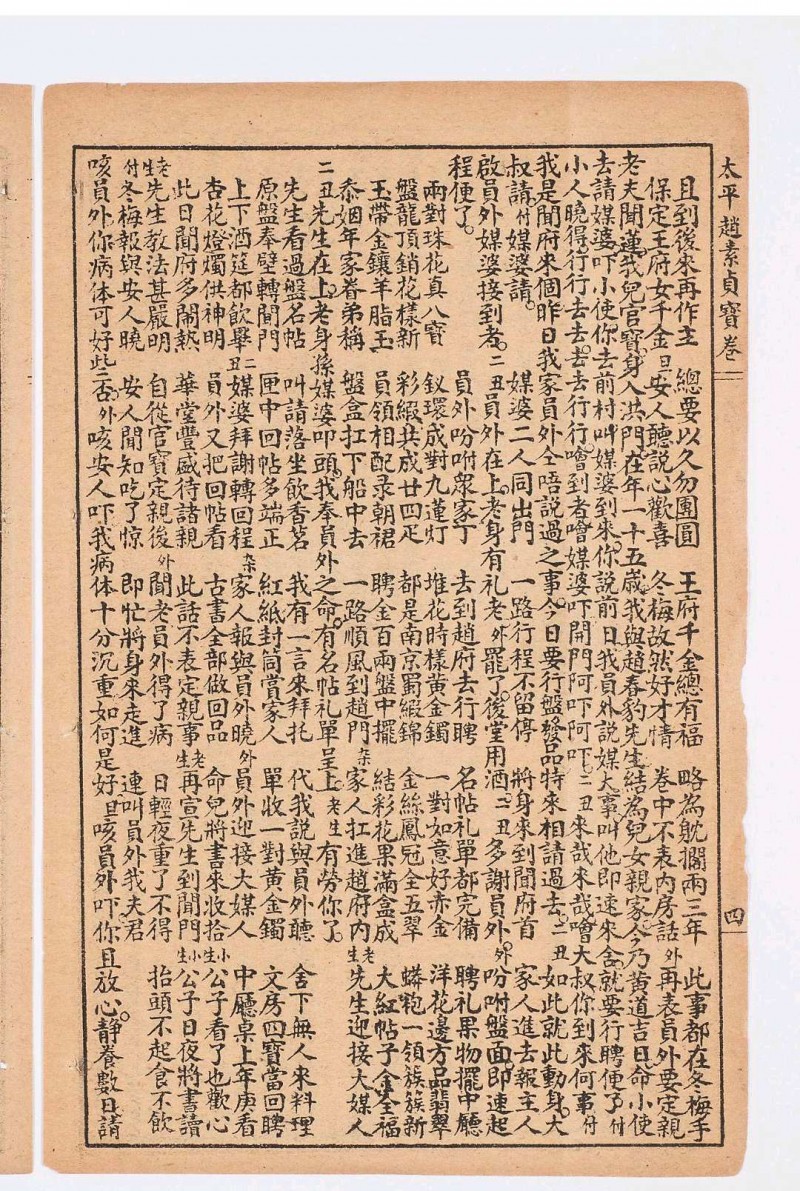 太平趙素貞寶卷二
四
且到後來再作主　總要以久勿團圓　王府千金總有福　略為躭擱兩三年　此事都在冬梅手
保定王府女千金旦安人聽説心歡喜　冬梅故然好才情　卷中不表內房話外再表員外要定親
老夫聞蓮我兒官寶身入洪門在年一十五歲我與趙春豹先生結為兒女親家今乃黃道吉日命小使
去請媒婆吓小使你去前村叫媒婆到來你說前日我員外說媒大事叫他即速來舍就要行聘便了付
小人曉得行行去去去去行行嚐到者嚐媒婆吓開門阿吓阿吓二丑來哉來哉嚐大叔你到來何事付
我是聞府來個昨日我家員外仝唔說過之事今日要行盤發品特來相請過去二丑如此就此動身大
叔請付媒婆請　媒婆二人同出門　一路行程不留停　將身來到聞府首　家人進去報主人
啟員外媒婆接到者二丑員外在上老身有礼老外罷了後堂用酒二丑多謝員外外吩咐盤面即速起
程便了　員外吩咐眾家丁　去到趙府去行聘　名帖礼單都完備　聘礼果物擺中廳
兩對珠花真八寶　釵環成對九蓮灯　堆花時樣黃金鐲　一對如意好赤金　洋花邊方品翡翠
盤龍頂銷花樣新　彩緞共成廿四疋　都是南京蜀緞錦　金絲鳳冠全五翠　蟒袍一領簇簇新
玉帶金鑲羊脂玉　員領相配录朝裙　聘金百兩盤中擺　結彩花果滿盒成　大紅帖子金全福
忝姻年家眷弟稱　盤盒扛下船中去　一路順風到趙門杂家人扛進趙府內老生先生迎接大媒人
二丑先生在上老身孫媒婆叩頭我奉員外之命有名帖礼單呈上老生有勞你了
先生看過盤名帖　叫請落坐飲香茗　我有一言來拜托　代我說與員外聽　舍下無人來料理
原盤奉壁轉聞門　匣中回帖多端正　紅紙封筒賞家人　單收一對黃金鐲　文房四寶當回聘
上下酒筵都飲畢二丑媒婆拜謝轉回程杂家人報與員外曉外員外迎接大媒人　中廳桌上年庚看
杏花燈燭供神明　員外又把回帖看　古書全部做回品　命兒將書來收拾小生公子看了也歡心
此日聞府多鬧熱　華堂豐盛待諸親　此話不表定親事老生再宣先生到聞門小生公子日夜將書讀
老生先生教法甚嚴明　自從官寶定親後外聞老員外得了病　日輕夜重了不得　抬頭不起食不飲
付冬梅報與安人曉　安人聞知吃了惊　即忙將身來走進　連叫員外我夫君
咳員外你病体可好些否外咳安人吓我病体十分沉重如何是好旦咳員外吓你且放心靜養數日請